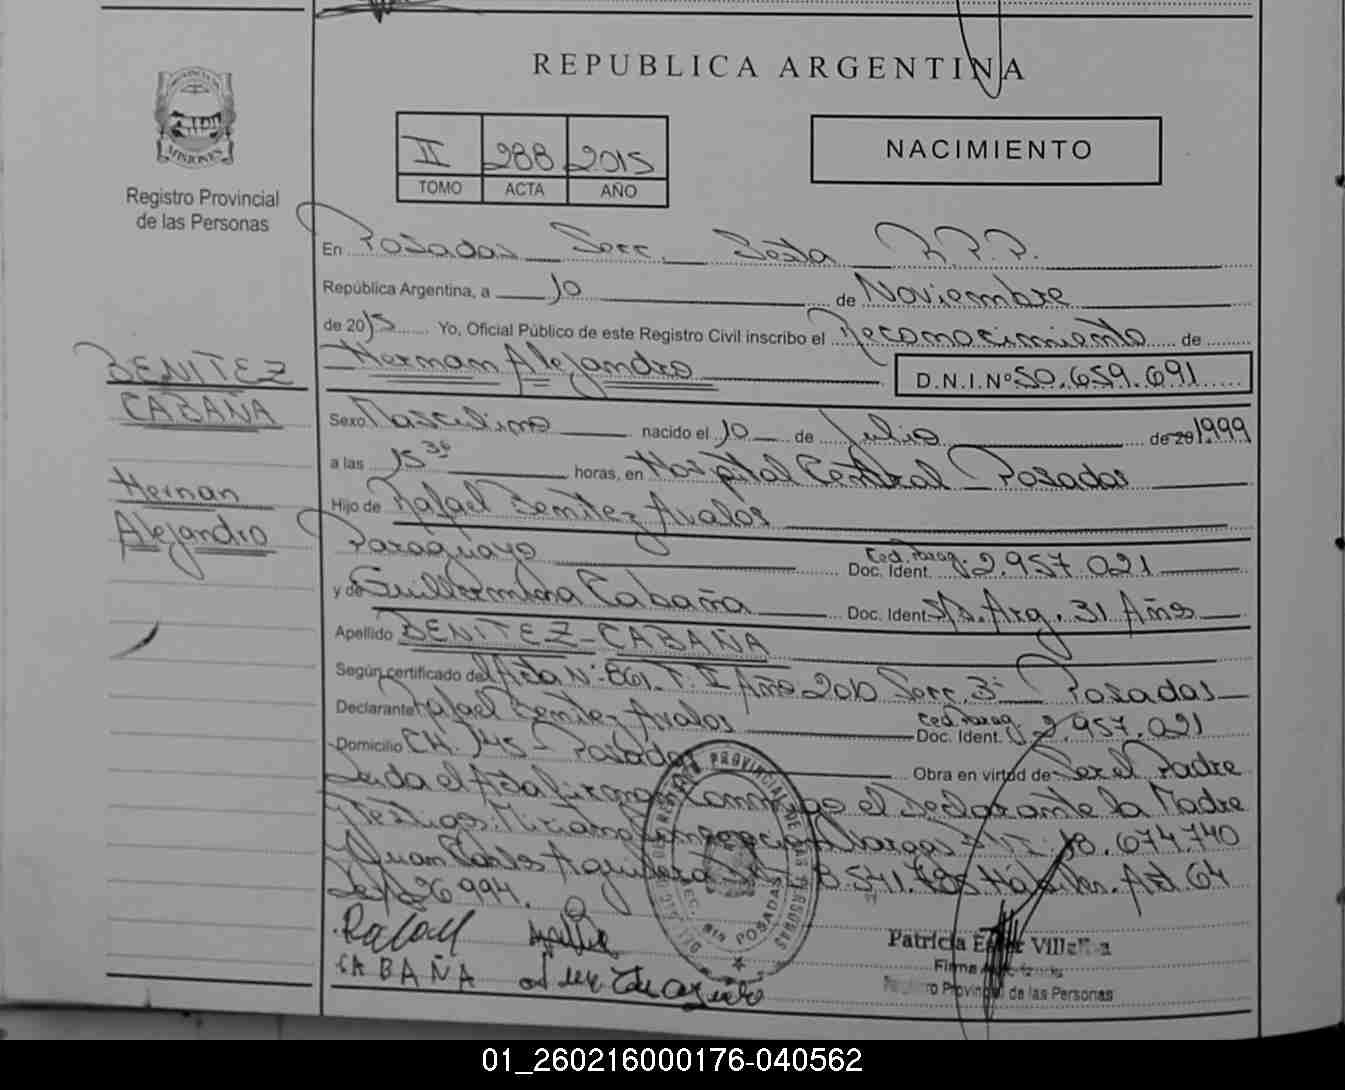 REPUBLICA ARGENTINA
PROVINCIA DE
MISIONES
Registro Provincial
de las Personas
II 288 2015
TOMO ACTA AÑO
NACIMIENTO
En Posadas Secc. Sexta R.P.P.
República Argentina, a 10 de Noviembre
de 2015 Yo, Oficial Público de este Registro Civil inscribo el Reconocimiento de
Hernan Alejandro D.N.I.Nº 50.659.691
BENITEZ
CABAÑA
Hernan
Alejandro
Sexo Masculino nacido el 10 de Julio de 20 1999
a las 15 30 horas, en Hospital Central Posadas
Hijo de Rafael Benitez Avalos
Paraguayo Ced. Parag. Doc. Ident. 2.957.021
y de Guillermina Cabaña Doc. Ident. s/d. Arg. 31 Años
Apellido BENITEZ-CABAÑA
Según certificado del Acta Nº 861. T. II Año 2010 Secc. 3ª Posadas
Declarante Rafael Benitez Avalos Ced. Parag. Doc. Ident. 2.957.021
Domicilio CH. 145 - Posadas Obra en virtud de Ser el Padre
Leida el Acta firman Conmigo el Declarante la Madre
Testigos: Miriam Vargas 18.674.740
Juan Carlos Aguilera Art. 64
26994.
Rafael
CABAÑA
REGISTRO PROVINCIAL DE LAS PERSONAS
SEC. 6ta POSADAS
Patricia Villalba
Firma
Registro Provincial de las Personas
01_260216000176-040562